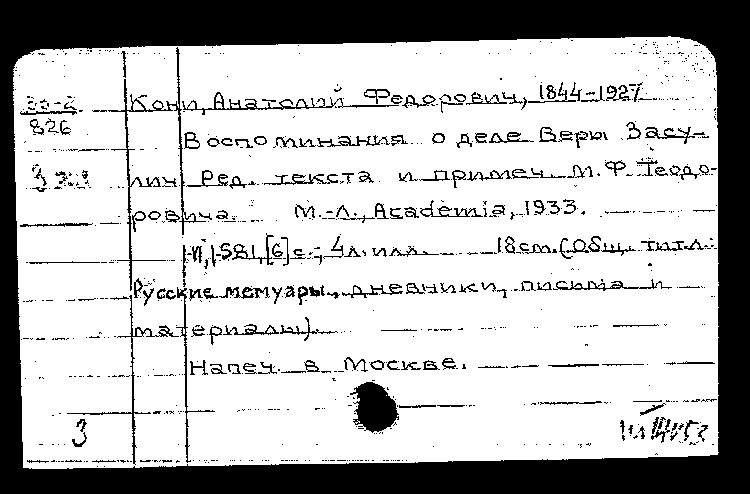 33-2
826
Кони, Анатолий Федорович, 1844-1927
Воспоминания о деле Веры Засу-
лич Ред. текста и примеч. М.Ф. Теодо-
ровича. М.-Л., Academia, 1933.
581, [6] с.; 4л. илл. 18см. (Общ. титл.:
Русские мемуары, дневники, письма и
материалы).
Напеч. в Москве.
3